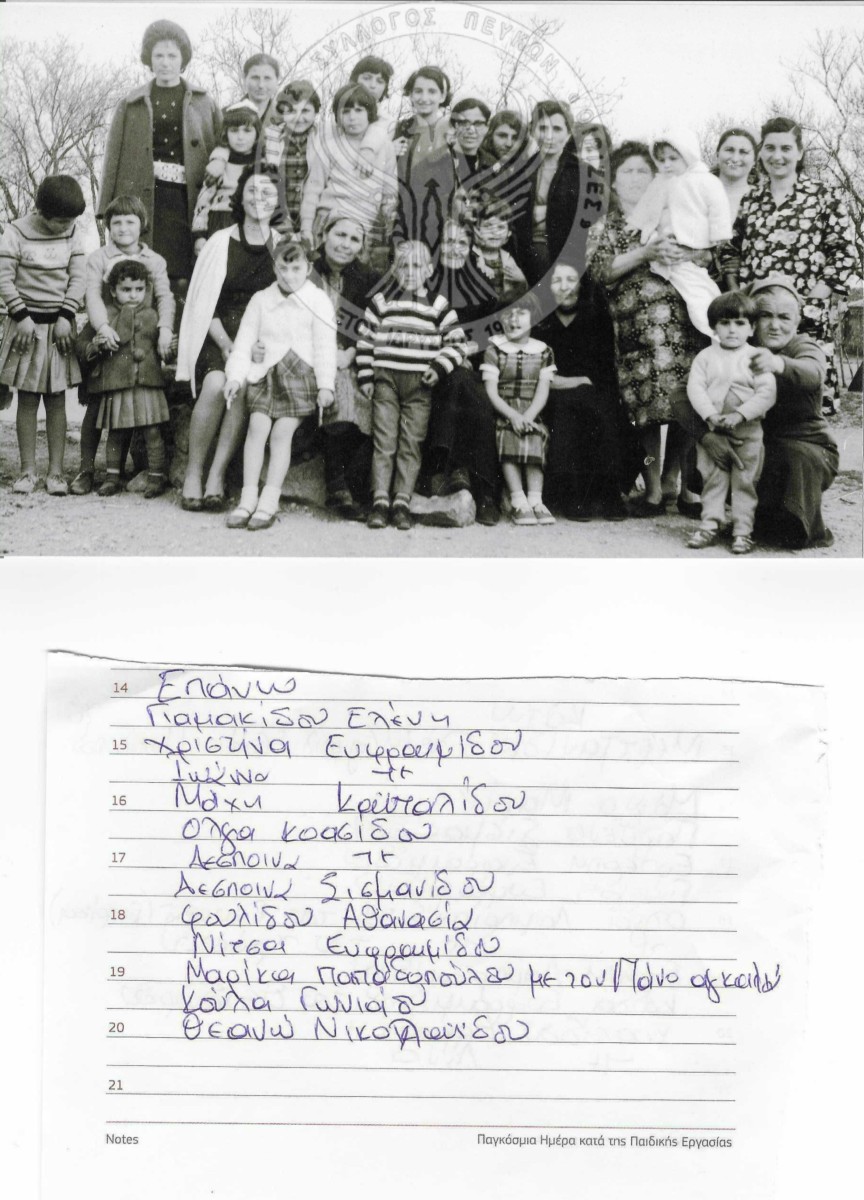 ΣΥΛΛΟΓΟΣ ΠΕΥΚΩΝ
14 Επάνω
Γιαμακίδου Ελένη
15 Χριστίνα Ευφραιμίδου
-//-
16 Μάχη Κρυσταλίδου
Ολγα Κοασίδου
17 Δεσποινα -//-
Δεσποινα Σισμανίδου
18 Φωλίδου Αθανασία
Νίτσα Ευφραιμίδου
19 Μαρίκα Παπαδοπούλου με τον Πάνο αγκαλιά
Κούλα Γωνιάδου
20 Θεανώ Νικολαΐδου
21
Notes Παγκόσμια Ημέρα κατά της Παιδικής Εργασίας